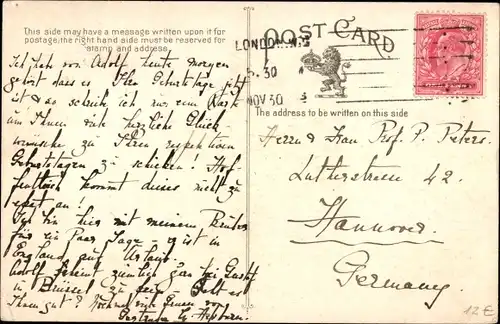 This side may have a message written upon it for
postage, the right hand side must be reserved for
stamp and address.
POST CARD
LONDON.
30
NOV 30
The address to be written on this side
Ich hab von Adolf heute morgen
gehört dass es Ihre Geburtstage jetzt
ist & so schicke ich nur eine Karte
um Ihnen viele herzliche Glück
wünsche zu Ihren respektiven
Geburtstagen zu schicken! Hof-
fentlich kommt dieses nicht zu
spät an!
Ich bin hier mit meinem Bruder
für ein Paar Tage – er ist in
England auf Urlaub.
Adolf scheint ziemlich gern bei
in Brüssel zu sein – Geht es
Ihnen gut? Nochmals viele Grüsse von
Gertrude
Herrn & Frau Prof. P. Peters.
Lutherstrasse 42.
Hannover.
Germany.
12 €